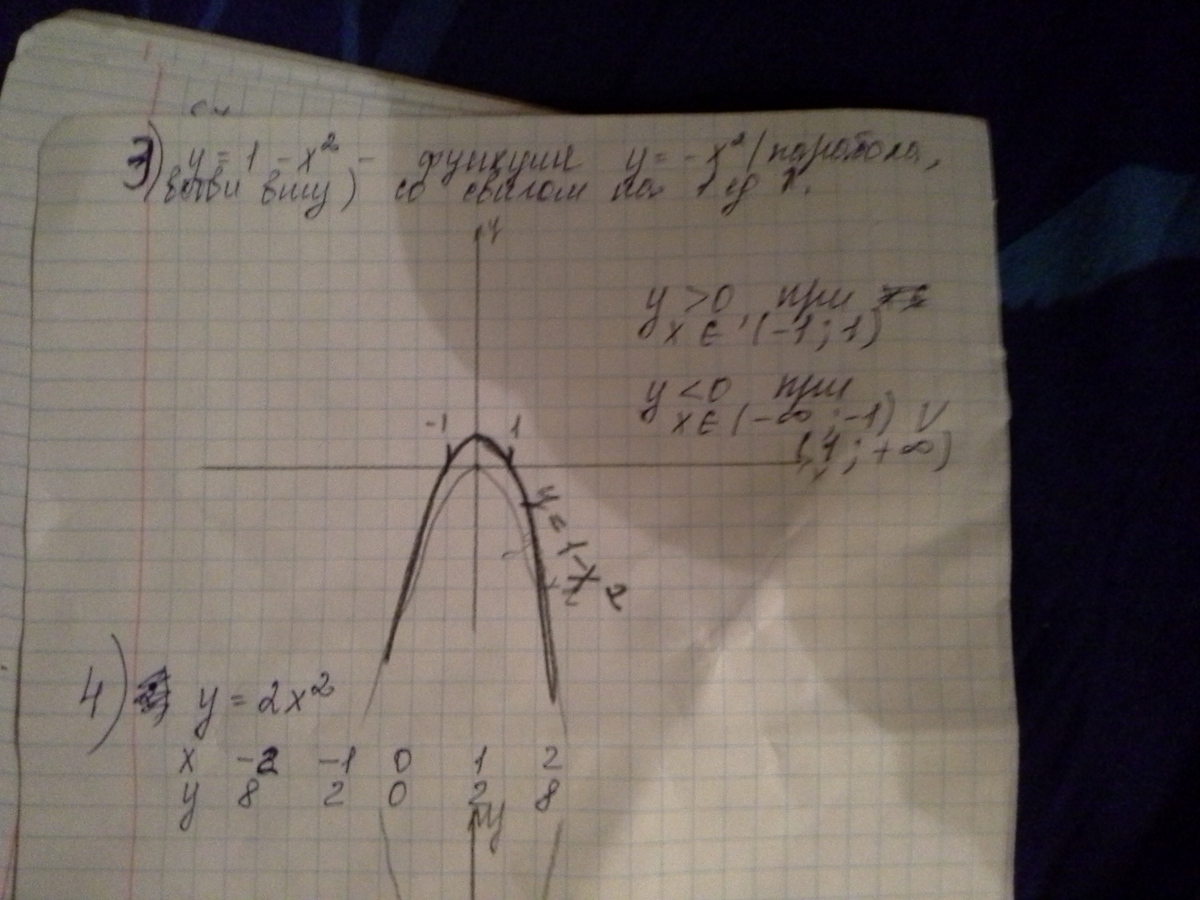 3) y = 1 - x² - функция y = -x² (парабола,
ветви вниз) со сдвигом на 1 ед
y
y > 0 при
x ∈ (-1; 1)
y < 0 при
x ∈ (-∞; -1) ∪
(1; +∞)
-1 1
x
y = 1 - x²
4) y = 2x²
x -2 -1 0 1 2
y 8 2 0 2 8
y